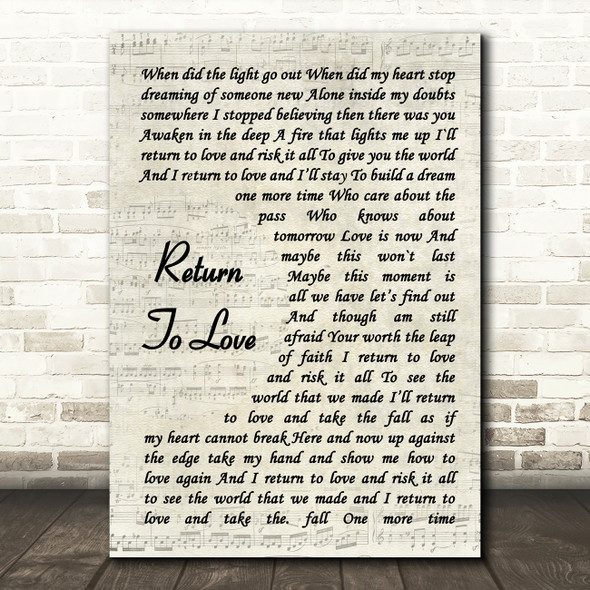 When did the light go out When did my heart stop
dreaming of someone new Alone inside my doubts
somewhere I stopped believing then there was you
Awaken in the deep A fire that lights me up I`ll
return to love and risk it all To give you the world
And I return to love and I'll stay To build a dream
one more time Who care about the
pass Who knows about
tomorrow Love is now And
maybe this won`t last
Maybe this moment is
all we have let's find out
And though am still
afraid Your worth the leap
of faith I return to love
and risk it all To see the
world that we made I'll return
to love and take the fall as if
my heart cannot break Here and now up against
the edge take my hand and show me how to
love again And I return to love and risk it all
to see the world that we made and I return to
love and take the. fall One more time
Return
To Love